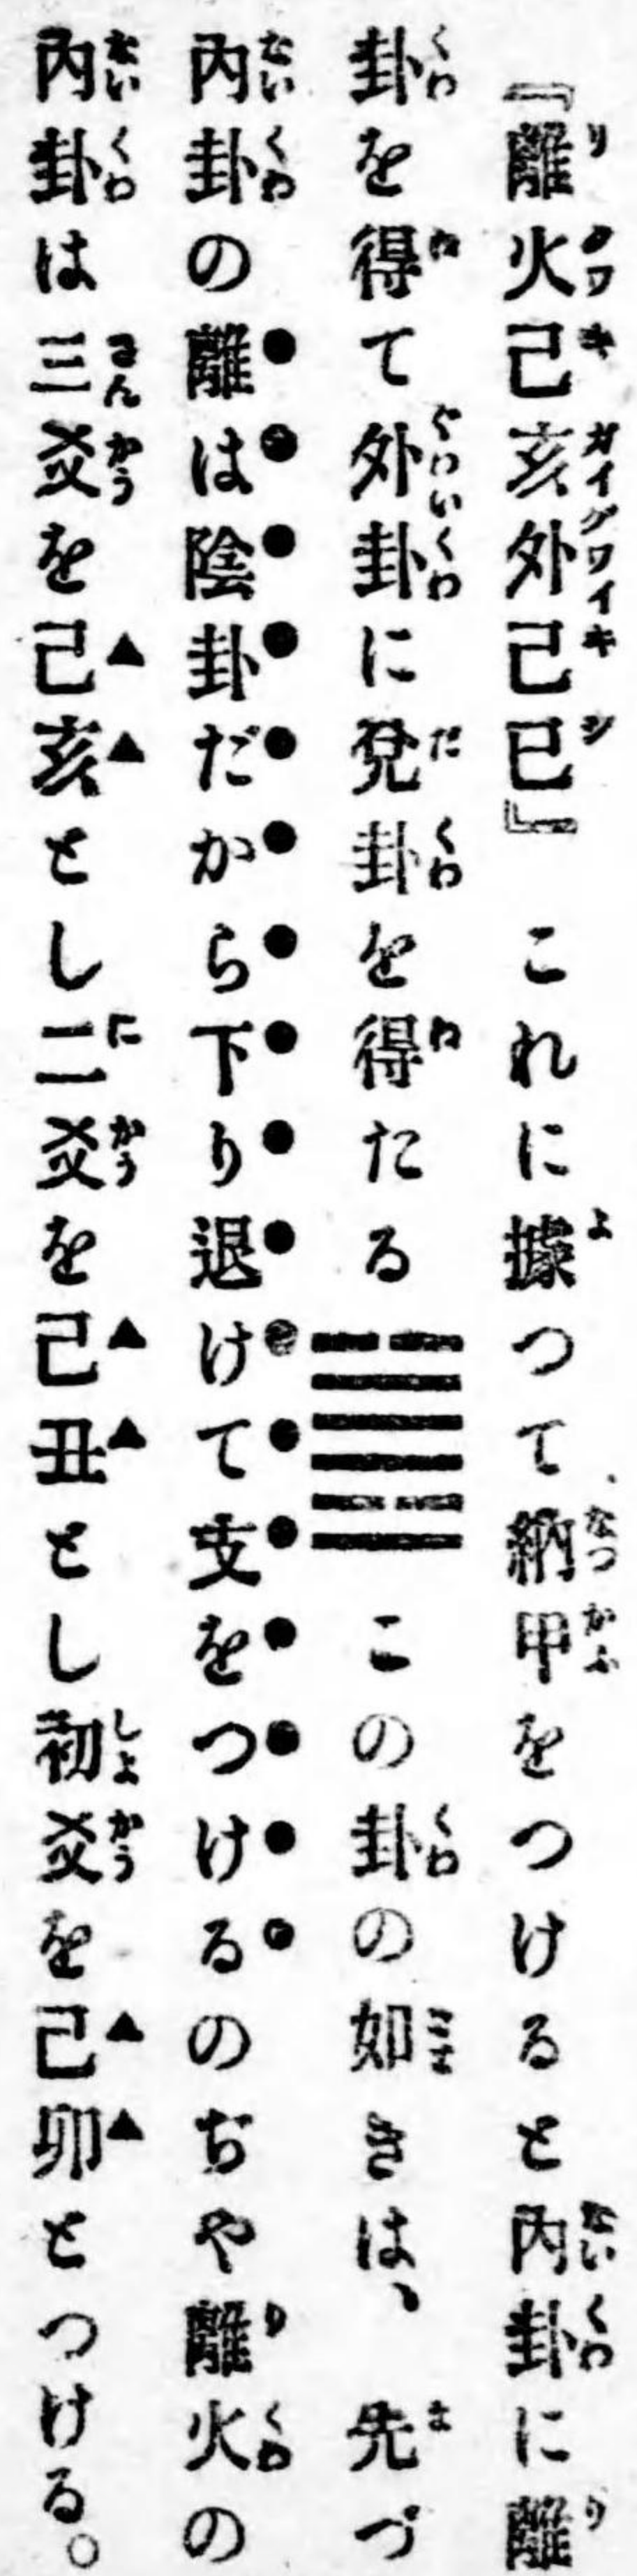 『離火己亥外己巳』これに據つて納甲をつけると內卦に離
卦を得て外卦に兌卦を得たる䷰この卦の如きは、先づ
內卦の離は陰卦だから下り退けて支をつけるのぢや離火の
內卦は三爻を己亥とし二爻を己丑とし初爻を己卯とつける。